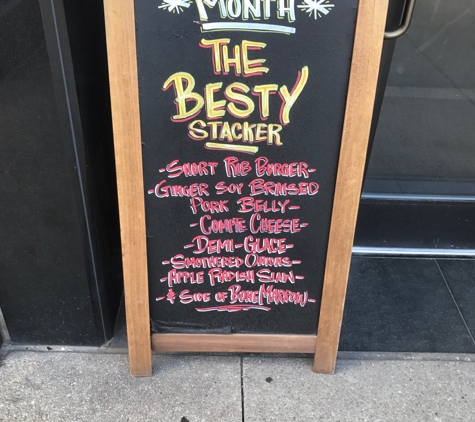 MONTH
THE
BESTY
STACKER
-SHORT RIB BURGER-
-GINGER SOY BRAISED
PORK BELLY-
-COMPTE CHEESE-
-DEMI-GLACE-
-SMOTHERED ONIONS-
-APPLE RADISH SLAW-
-& SIDE OF BONE MARROW-